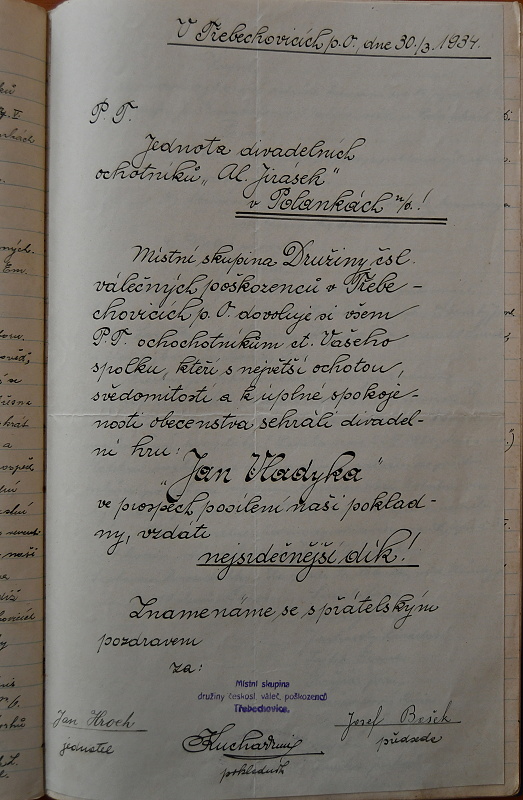 V Třebechovicích p. O., dne 30./3. 1934.
P. T.
Jednota divadelních
ochotníků „Al. Jirásek"
v Polankách n/o.!
Místní skupina Družiny čsl.
válečných poškozenců v Třebe-
chovicích p. O. dovoluje si všem
P. T. ochochotníkům ct. Vašeho
spolku, kteří s největší ochotou,
svědomitostí a k úplné spokoje-
nosti obecenstva sehráli divadel-
ní hru:
„Jan Vladyka"
ve prospěch posílení naší poklad-
ny, vzdáti
nejsrdečnější dík!
Znamenáme se s přátelským
pozdravem
za:
Místní skupina
družiny českosl. váleč. poškozenců
Třebechovice.
Jan Hroch
jednatel
pokladník
Josef Bešek
předseda